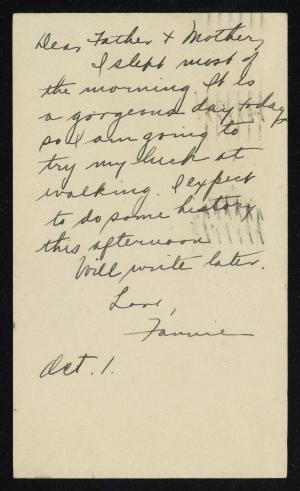 Dear Father & Mother,
I slept most of
the morning. It is
a gorgeous day today
so I am going to
try my luck at
walking. I expect
to do some history
this afternoon
Will write later.
Love,
Fannie
Oct. 1.